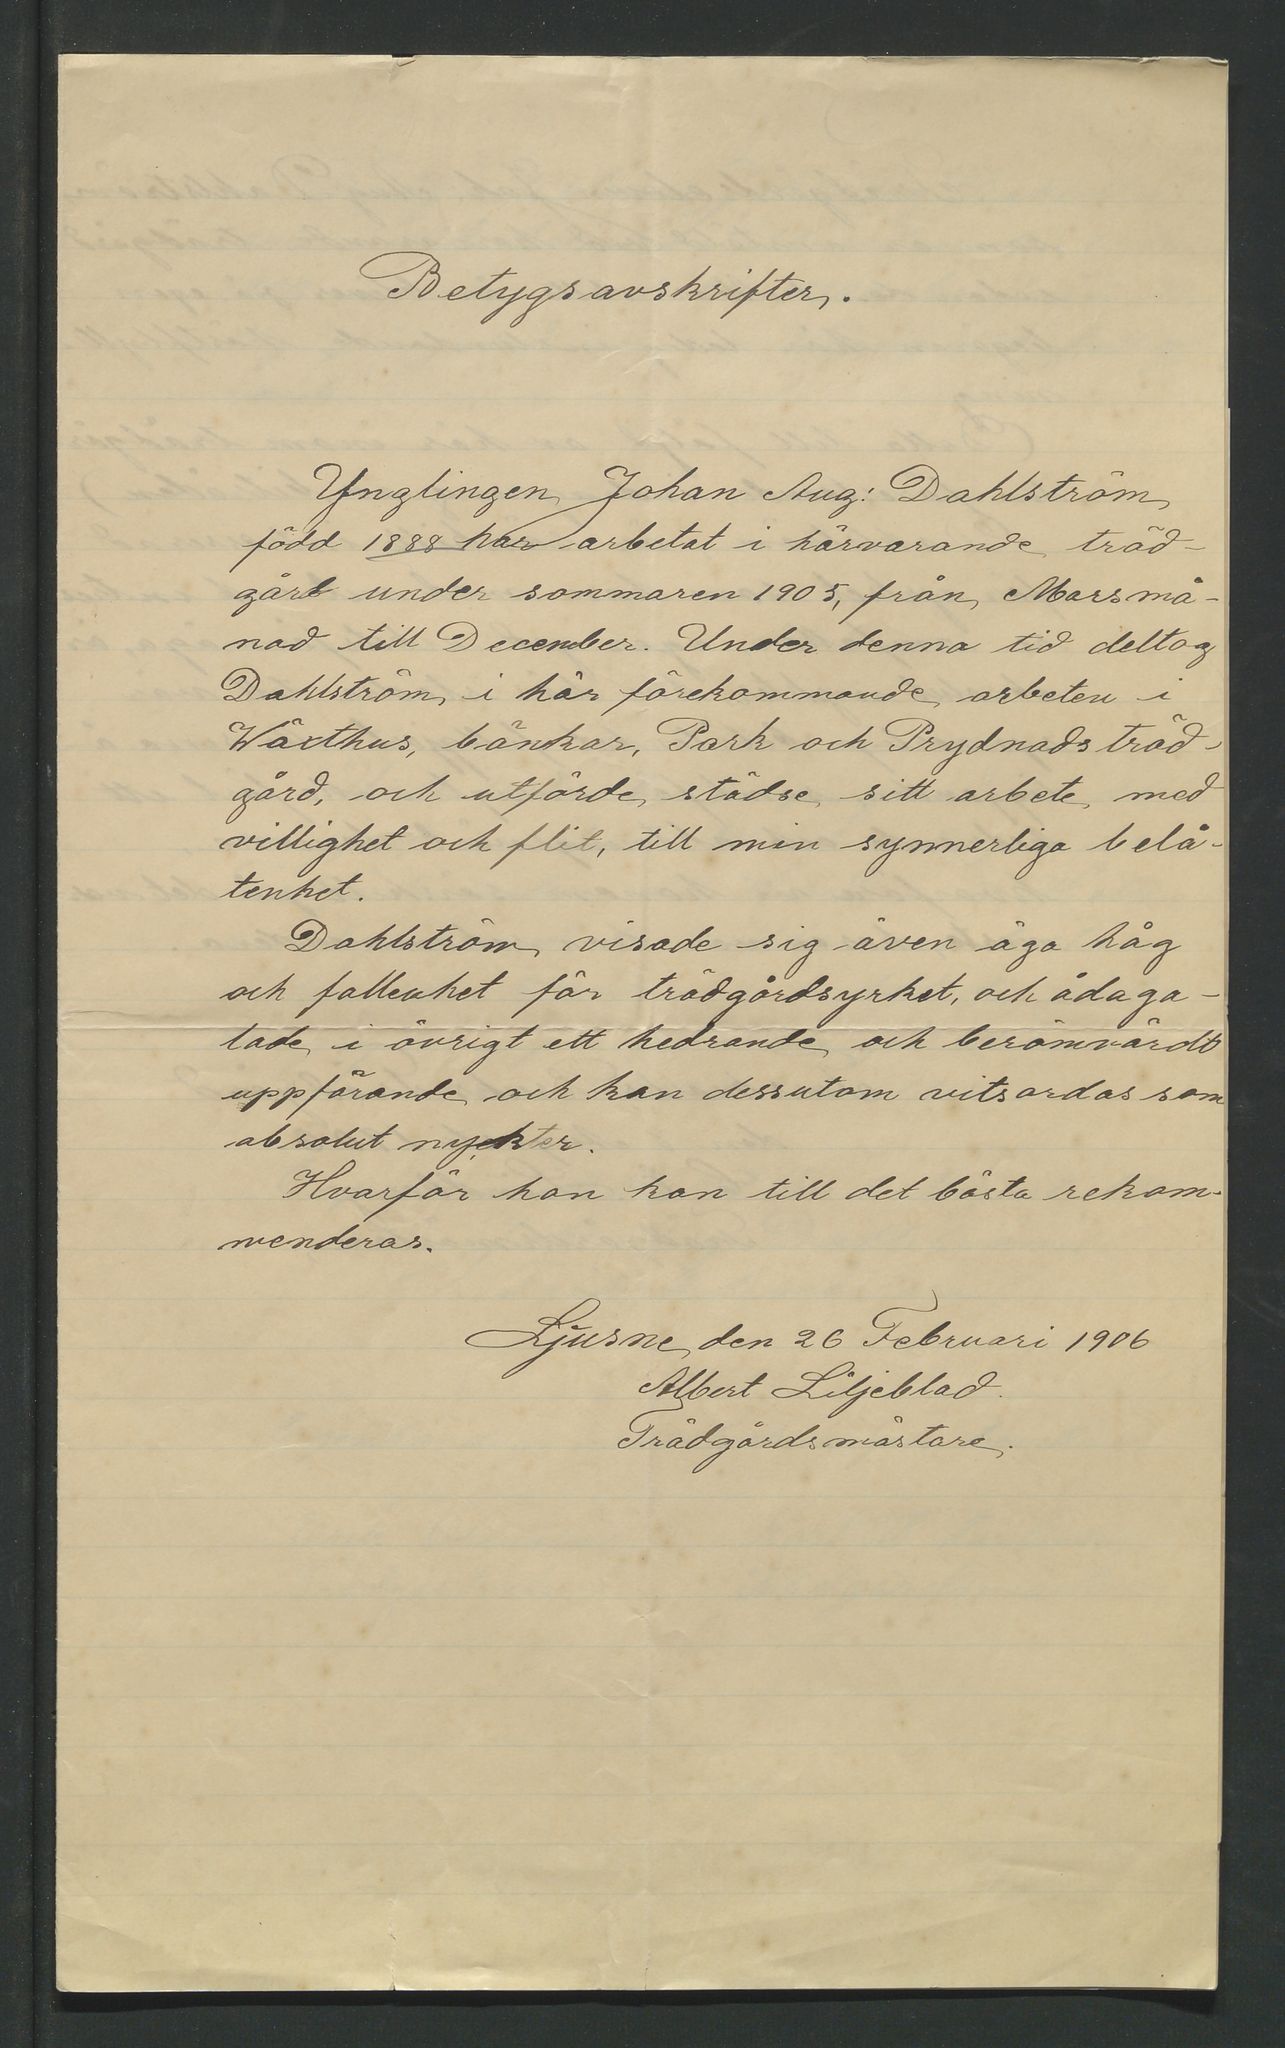 Betygsavskrifter.
Ynglingen Johan Aug: Dahlström
född 1888 har arbetat i härvarande träd-
gård under sommaren 1905, från Marsmå-
nad till December. Under denna tid deltog
Dahlström i här förekommande arbeten i
Wäxthus, bänkar, Park och Prydnadsträd-
gård, och utförde städse sitt arbete med
villighet och flit, till min synnerliga belå-
tenhet.
Dahlström visade sig även äga håg
och fallenhet för trädgårdsyrket, och ådaga-
lade i övrigt ett hedrande och berömvärdt
uppförande och kan dessutom vitsordas som
absolut nyckter.
Hvarför han kan till det bästa rekom-
menderas.
Ljusne den 26 Februari 1906
Albert Liljeblad.
Trädgårdsmästare.